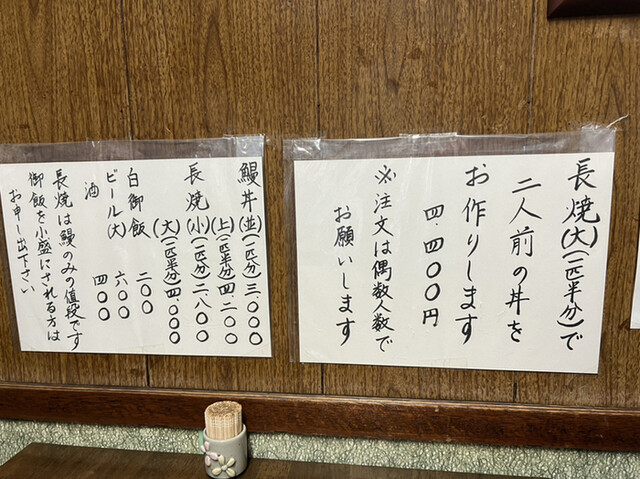 長焼(大)(一匹半分)で
二人前の丼を
お作りします
四.四〇〇円
※注文は偶数人数で
お願いします
鰻丼(並)(一匹分)三.〇〇〇
(上)(一匹半分)四.二〇〇
長焼(小)(一匹分)二.八〇〇
(大)(一匹半分)四.〇〇〇
白御飯 二〇〇
ビール(大) 六〇〇
酒 四〇〇
長焼は鰻のみの値段です
御飯を小盛にされる方は
お申し出下さい